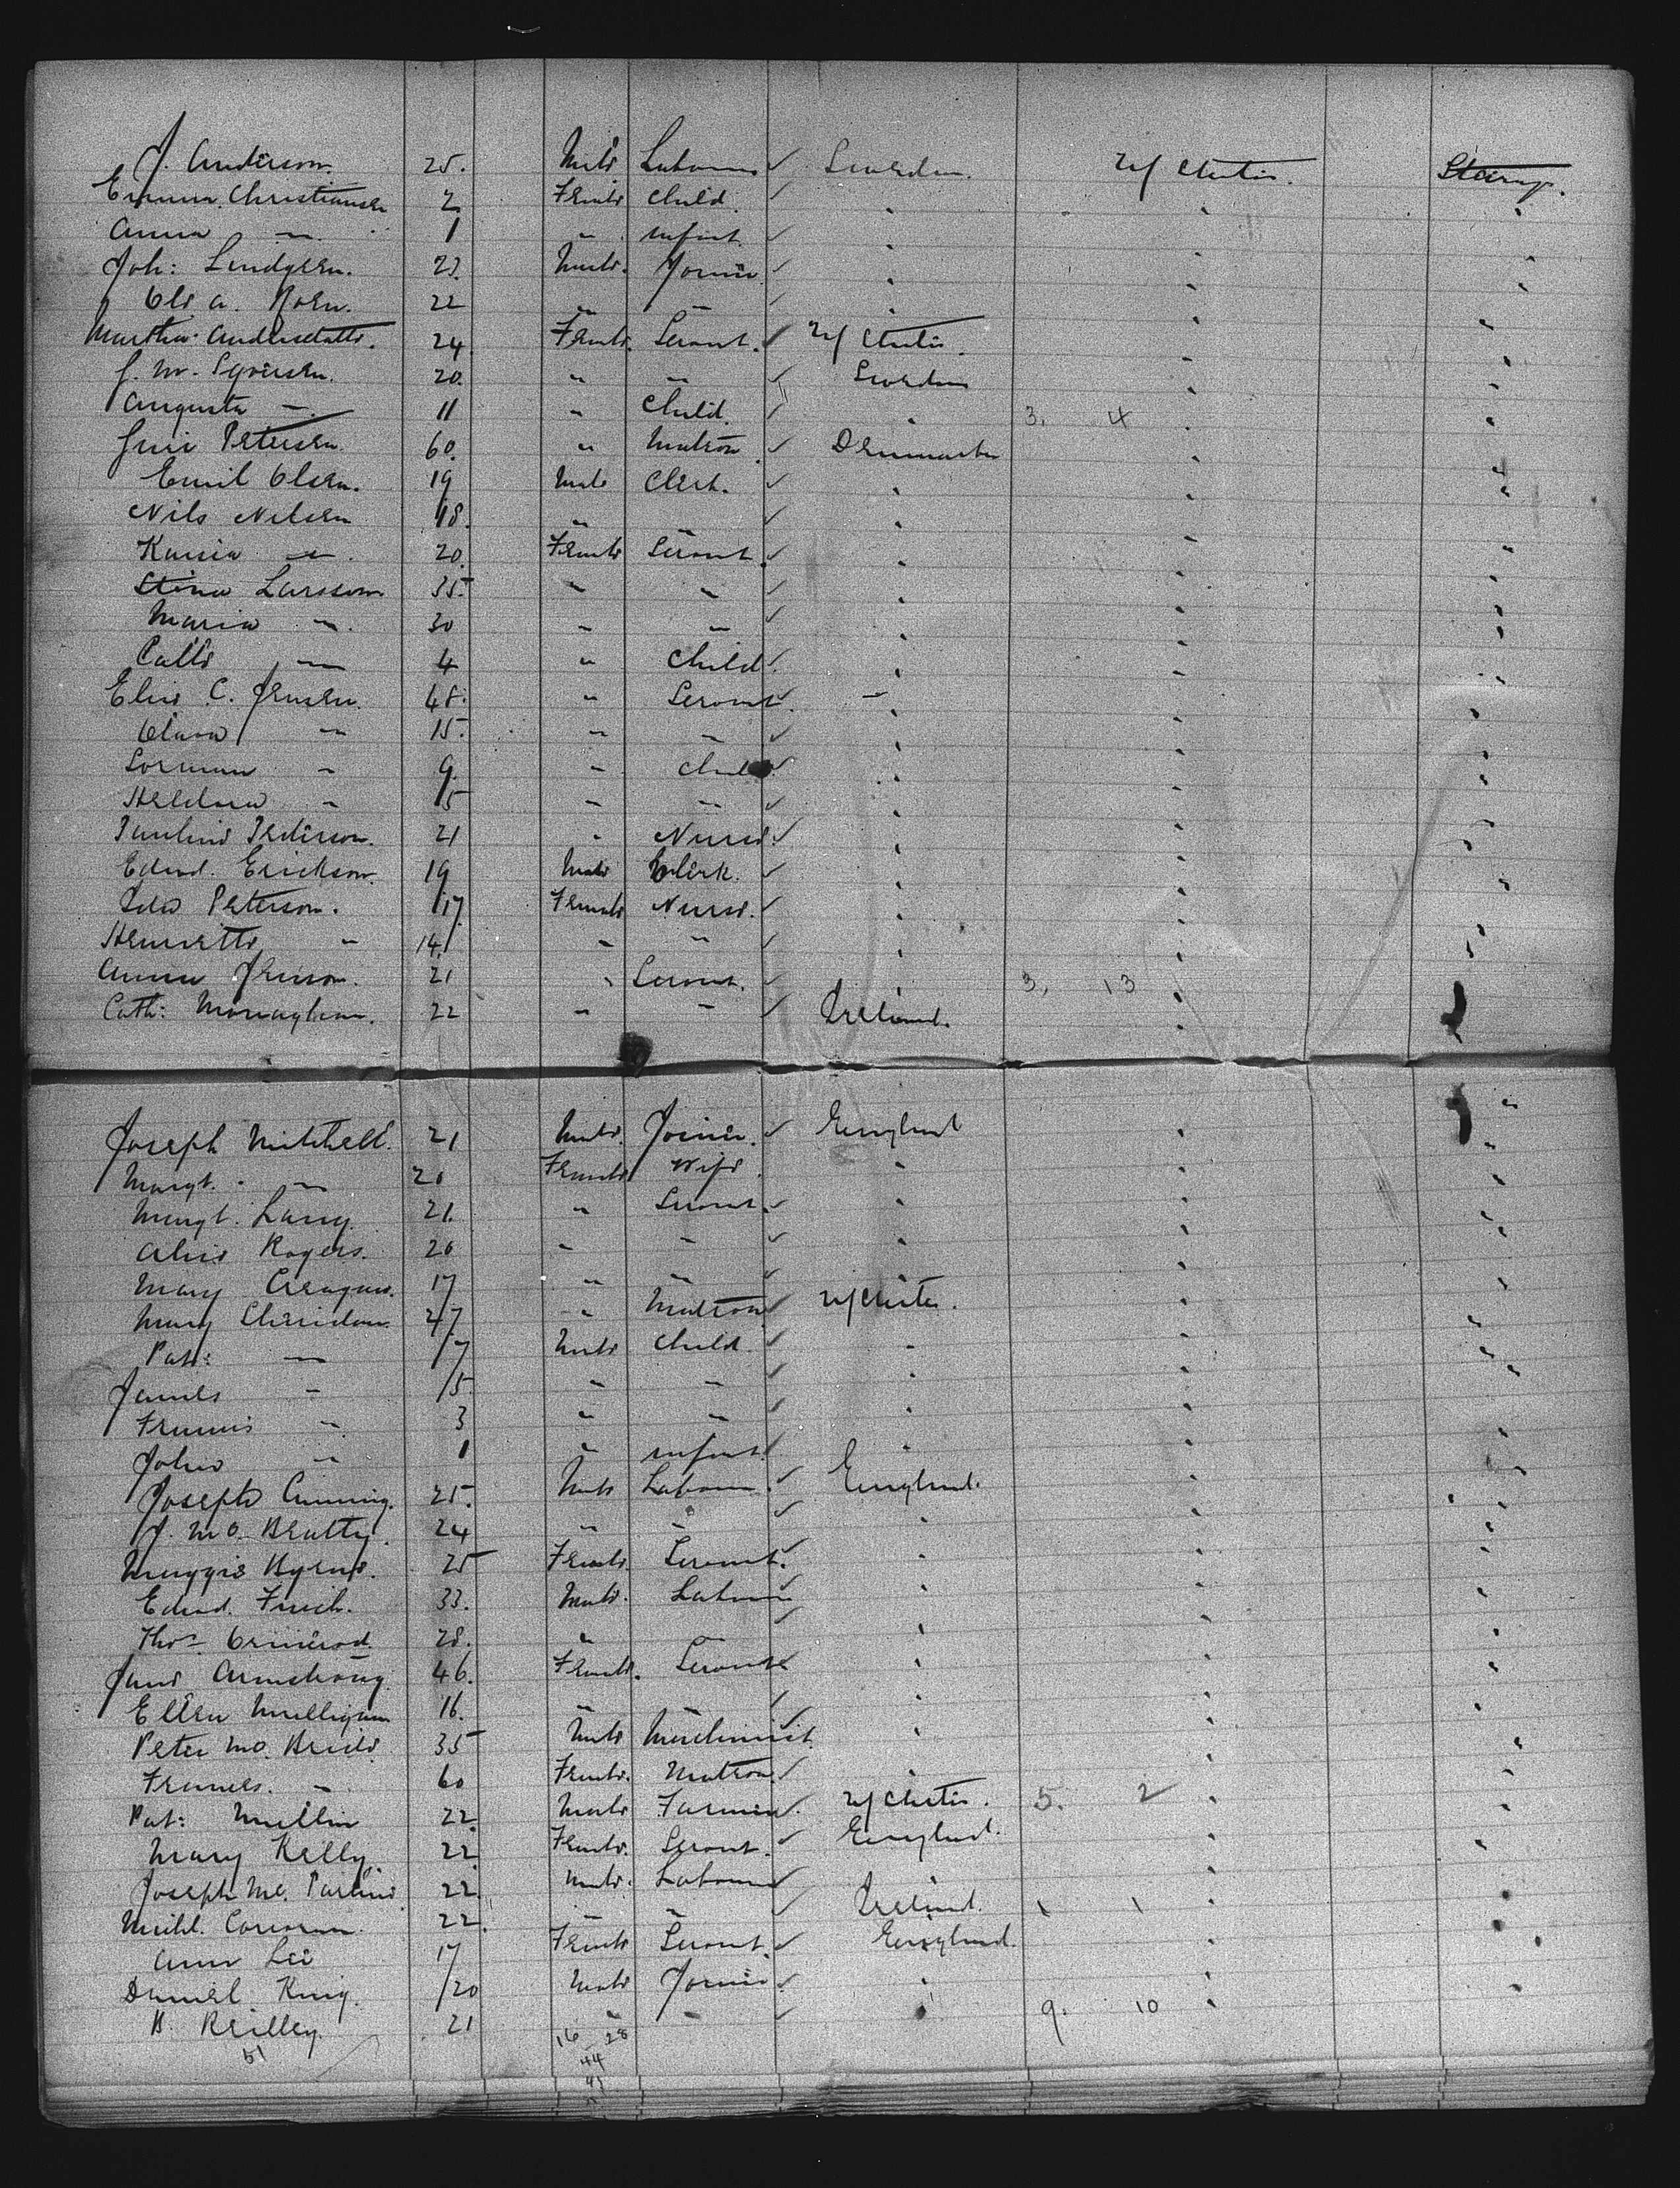 J. Anderson. 25. Male Labourer ✓ Sweden. U/States. Steerage.
Emma Christiansen 2 Female Child. ✓ " " "
Anna " 1 " Infant. ✓ " " "
Joh: Lindgren. 23. Male. Joiner. ✓ " " "
Ole A. Roen. 22 " " ✓ " " "
Martha 24 Female. Servant. ✓ U/States. " "
20. " " ✓ Sweden " "
Augusta " 11 " Child. ✓ " 3. 4 " "
Petersen. 60. " Matron ✓ Denmark " "
Emil Olsen. 19 Male Clerk. ✓ " " "
Nils Nelsen 18. " " ✓ " " "
" 20. Female Servant. ✓ " " "
Stina Larsson 35. " " ✓ " " "
Maria " 30 " " ✓ " " "
" 4 " Child ✓ " " "
C. Jensen. 48. " Servant ✓ " " "
Clara " 15. " " ✓ " " "
" 9. " Child ✓ " " "
" 5 " " ✓ " " "
Pauline Pederson. 21 " Nurse. ✓ " " "
Edwd. Erickson. 19 Male Clerk. ✓ " " "
Ida Peterson. 17. Female Nurse. ✓ " " "
Henrette " 14. " " ✓ " " "
Anna Jenson. 21 " Servant. ✓ " 3. 13 " "
Cath: Monaghan. 22 " " ✓ Ireland. " "
Joseph Mitchell. 21 Male. Joiner. ✓ England " "
Margt. " 20 Female Wife. " " "
Margt. Lang. 21. " Servant. ✓ " " "
Alice Rogers. 20 " " ✓ " " "
Mary 17 " " ✓ " " "
Mary Sheridan. 47. " Matron ✓ U/States. " "
Pat: " 7 Male Child. ✓ " " "
James " 5 " " ✓ " " "
Francis " 3 " " ✓ " " "
John " 1 " Infant. ✓ " " "
Joseph Cumming. 25. Male Labourer ✓ England. " "
J. Mc. Beatty. 24 " " ✓ " " "
Maggie Byrne. 25 Female. Servant. ✓ " " "
Edwd. Finch. 33. Male. Labourer ✓ " " "
Thos Ormerod. 28. " " ✓ " " "
Jane Armstrong. 46. Female. Servant ✓ " " "
Ellen Mulligan 16. " " ✓ " " "
Peter Mc. Bride. 35 Male Machinist. ✓ " " "
Frances. " 60 Female. Matron. ✓ " " "
Pat: Mullin 22. Male Farmer. U/States. 5. 2 " "
Mary Kelly. 22. Female. Servant. ✓ England. " "
Joseph Mc. Partlin 22. Male. Labourer ✓ " " "
Michl. Corcoran. 22. " " ✓ Ireland. 1 1 " "
Ann Lee 17 Female Servant. ✓ England. " "
Daniel King. 20 Male Joiner ✓ " " "
B. Reilley. 21 " " ✓ " 9. 10 " "
51 16 28
44